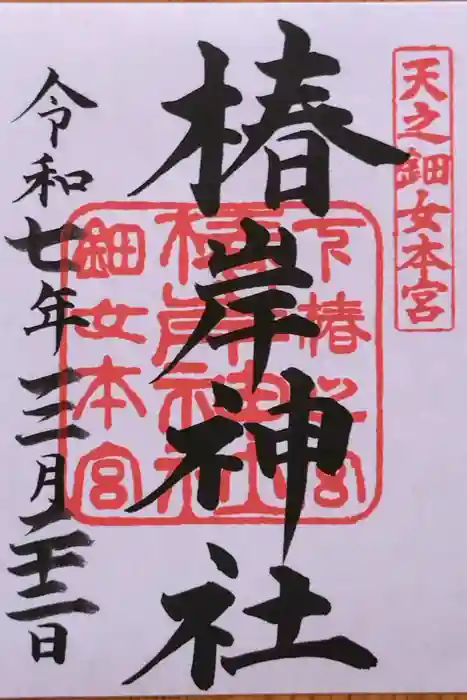 天之鈿女本宮
椿岸神社
下椿之宮
椿岸神社
鈿女本宮
令和七年三月二十三日